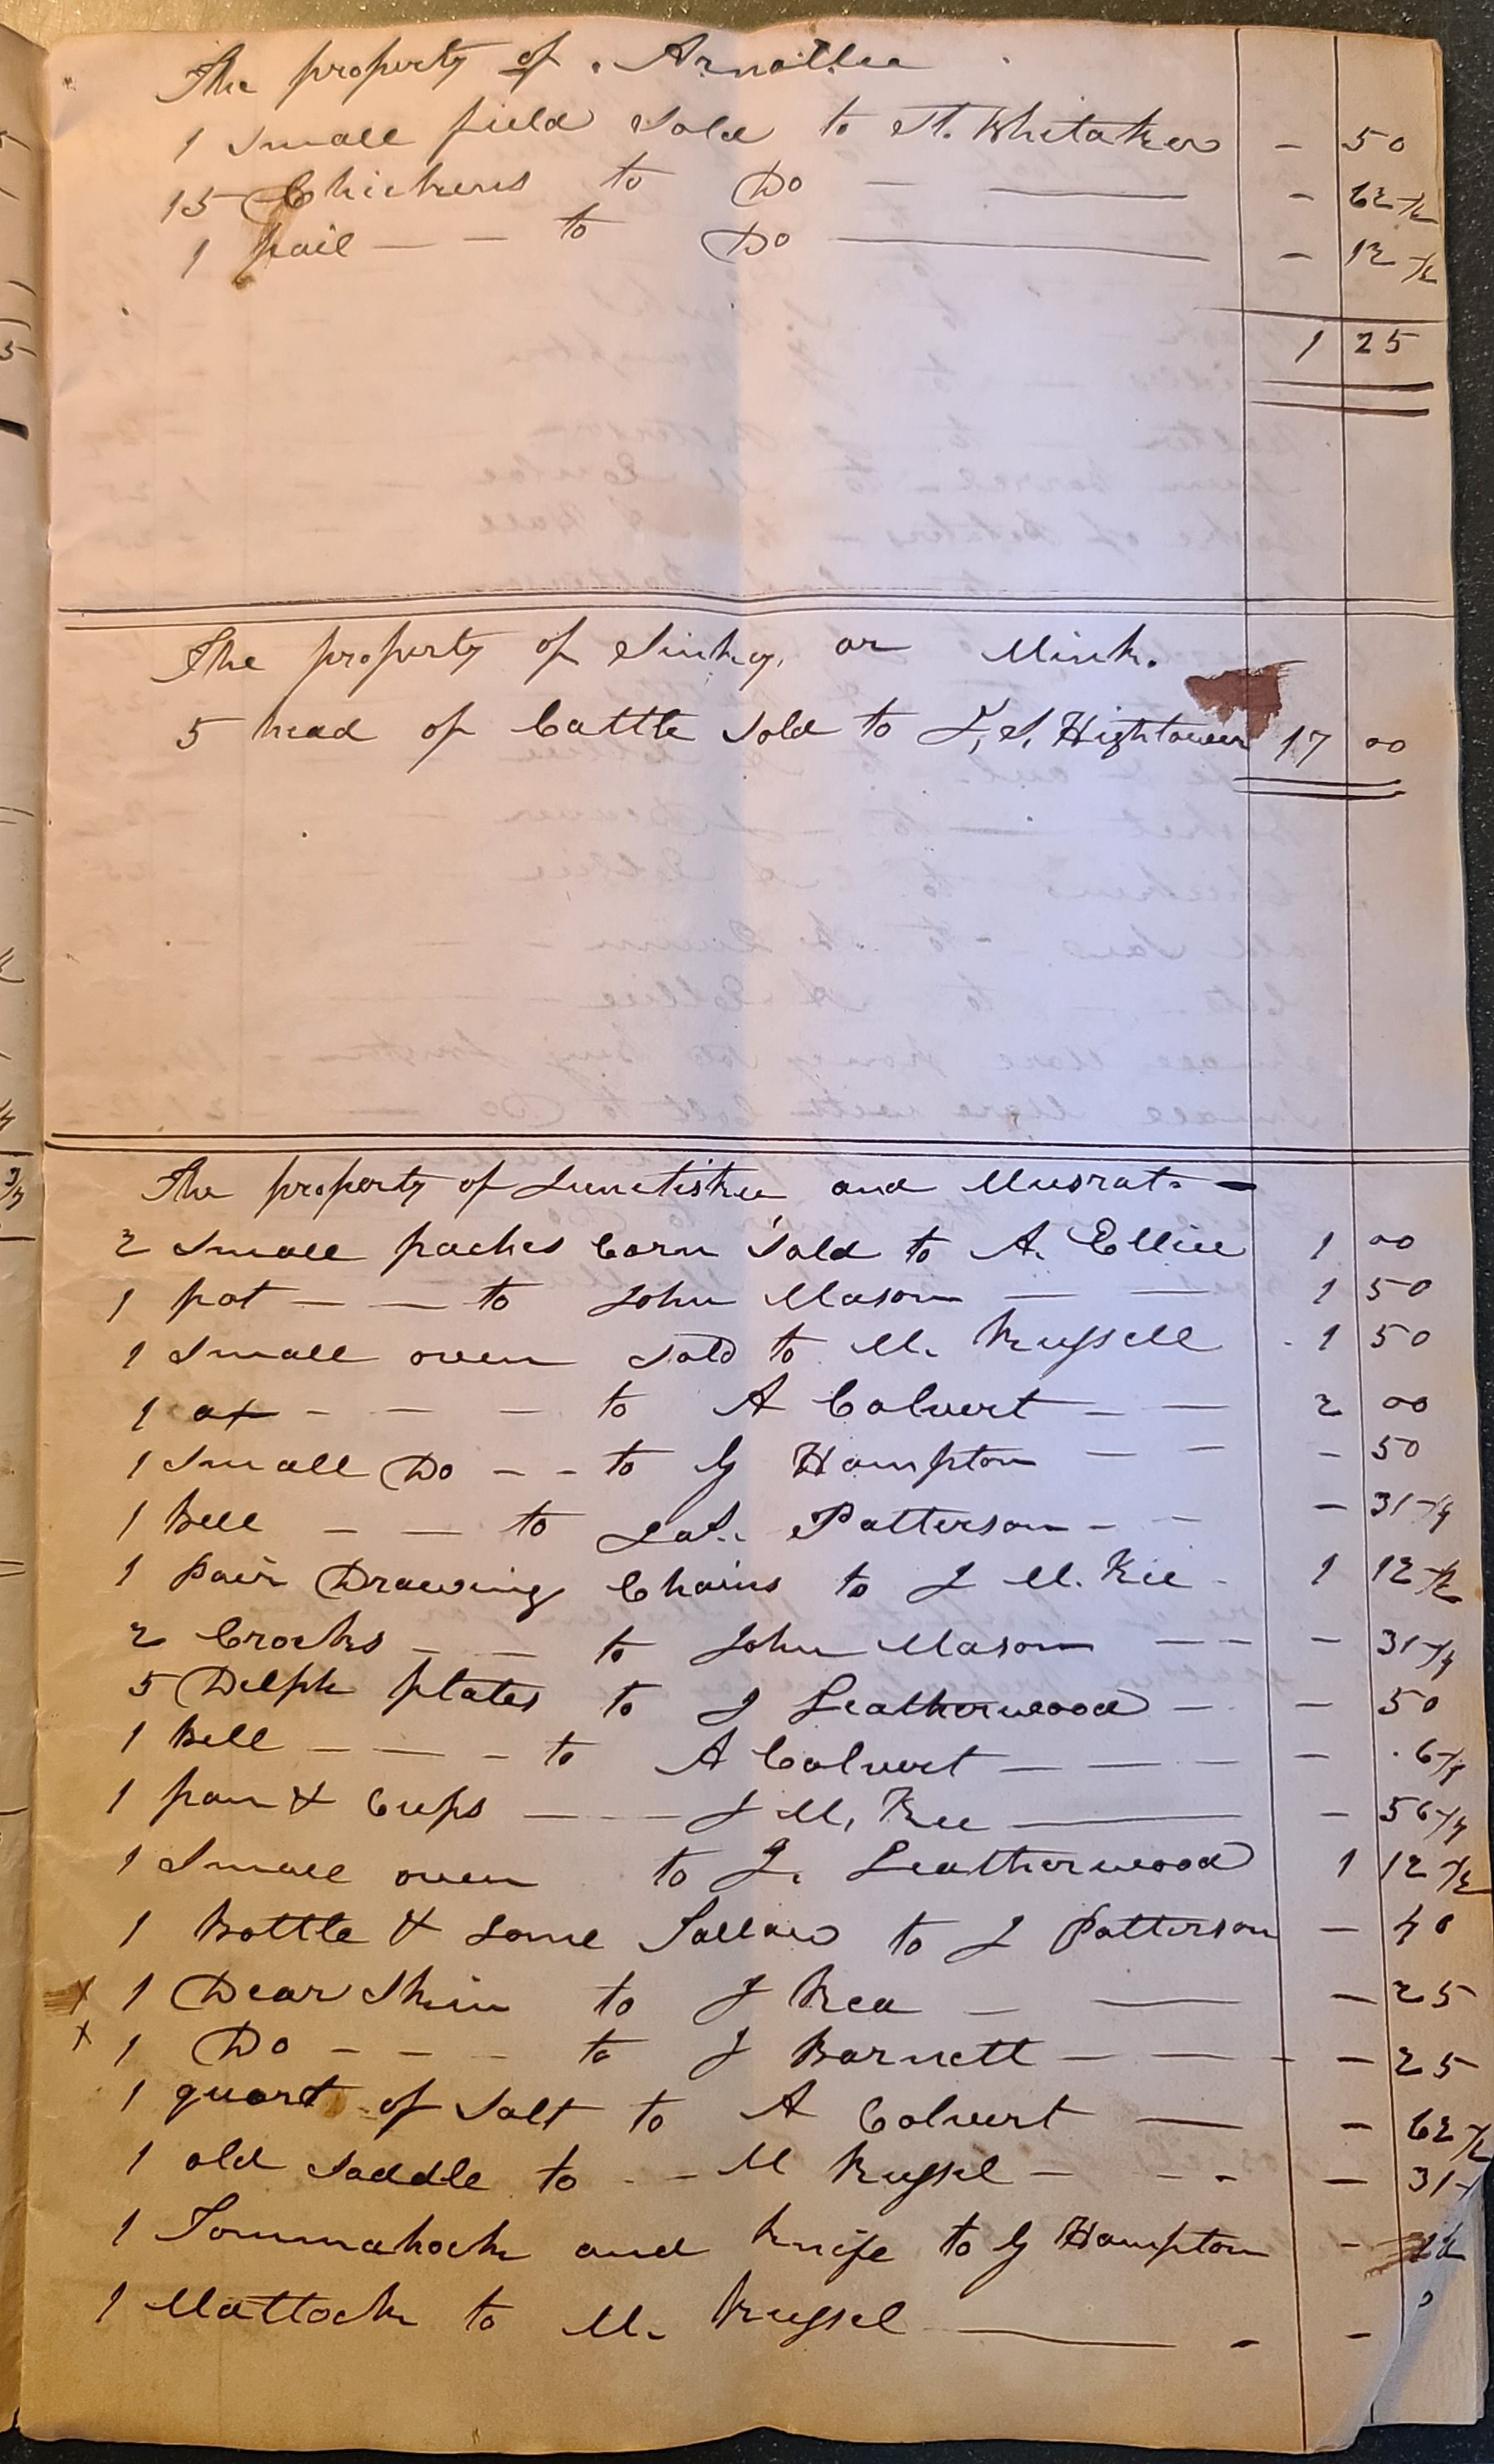 The property of Arnatlee
1 Small field Sold to A. Whitaker - 50
15 Chickens to Do - — - 62 1/2
1 pail - - to Do — - 12 1/2
1 25
The property of Sinky, or Mink.
5 head of Cattle Sold to T, S, Hightower 17 00
The property of and Musrat. -
2 Small paches Corn Sold to A. Ellice 1 00
1 pot — — to John Mason — — 1 50
1 Small oven Sold to M. Russell 1 50
1 ax - - - to A Colvert - — 2 00
1 Small Do - - to G Hampton — - - 50
1 Bell - — to Patterson - - - 31 1/4
1 Pair Drawing Chains to J M. Kee - 1 12 1/2
2 Crocks - - to John Mason - - - 31 1/4
5 Delph plates to J Leatherwood - - 50
1 Bell - - - to A Colvert — - - - 6 1/4
1 pan & Cups — - — J M, Kee — - 56 1/4
1 Small oven to J. Leatherwood 1 12 1/2
1 Bottle & Some Tallow to J Patterson - 40
x 1 Dear Skin to J Rea — — - 25
x 1 Do - - - to J Barnett — — - - 25
1 quart of Salt to A Colvert — - 62 1/2
1 old Saddle to - - M Russel - - - - 31
1 Tommahock and Knife to G Hampton -
1 Mattock to M. Russel — - -